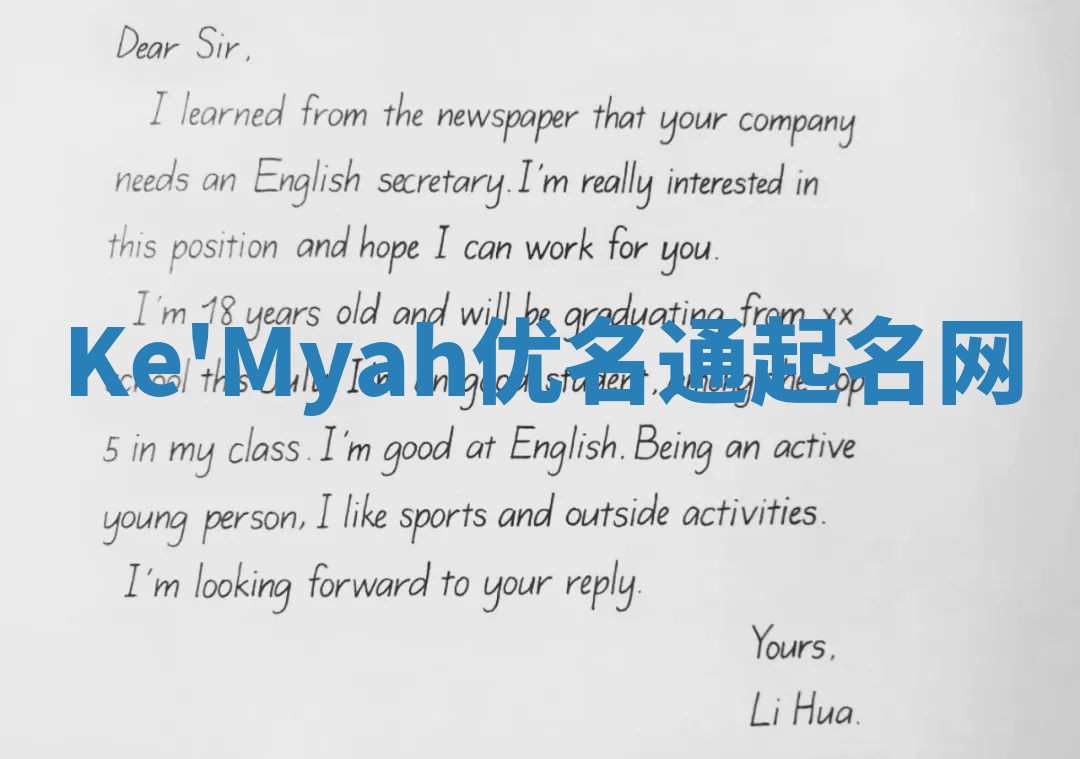 Dear Sir,
I learned from the newspaper that your company
needs an English secretary. I'm really interested in
this position and hope I can work for you.
I'm 18 years old and will be graduating from xx
Ke'Myah优名通起名网
school this July. I'm an good student, among the top
5 in my class. I'm good at English. Being an active
young person, I like sports and outside activities.
I'm looking forward to your reply.
Yours,
Li Hua.